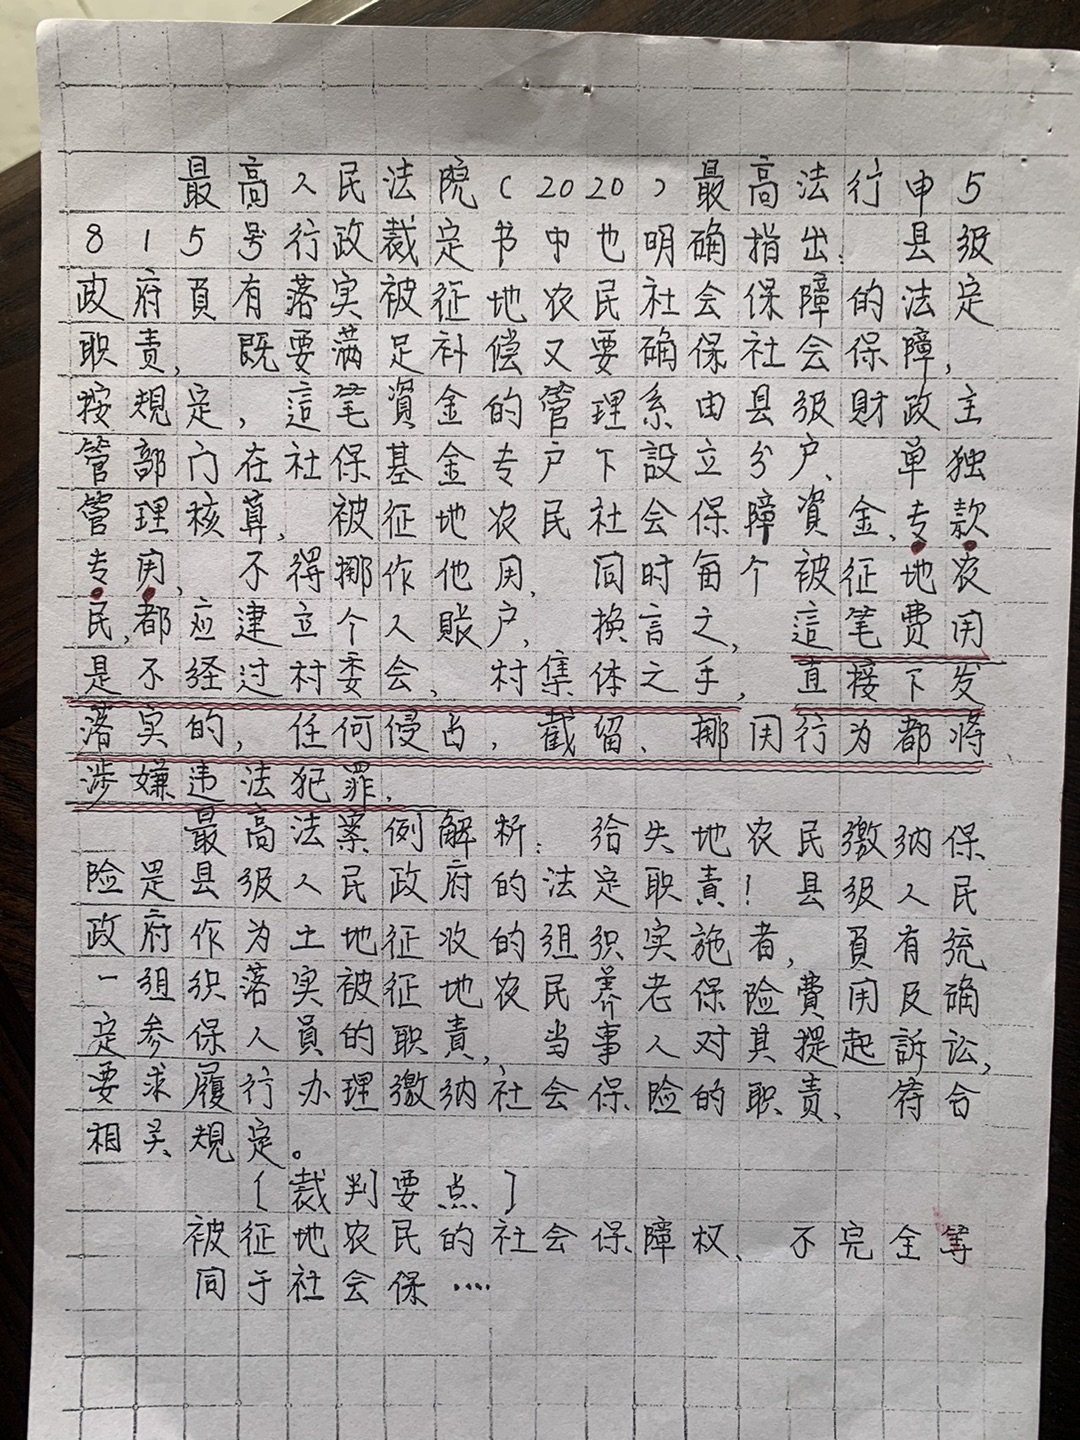 最高人民法院(2020)最高法行申5
815号行政裁定书中也明确指出、县级
政府負有落实被征地农民社会保障的法定
职责,既要满足补偿又要确保社会保障,
按規定,這笔資金的管理系由县级財政主
管部门在社保基金专户下設立分户、单独
管理核算,被征地农民社会保障資金、专款
专用,不得挪作他用,同时每个被征地农
民,都应建立个人賬户,换言之,這笔費用
是不经过村委会,村集体之手,直接下发
落实的,任何侵占,截留、挪用行为都将
涉嫌违法犯罪,
最高法案例解析:给失地农民缴纳保
险是县级人民政府的法定职責!县级人民
政府作为土地征收的组织实施者,負有统
一组织落实被征地农民养老保险費用及确
定参保人員的职責,当事人对其提起訴讼,
要求履行办理缴纳社会保险的职责、符合
相关規定。
[裁判要点]
被征地农民的社会保障权、不完全等
同于社会保....